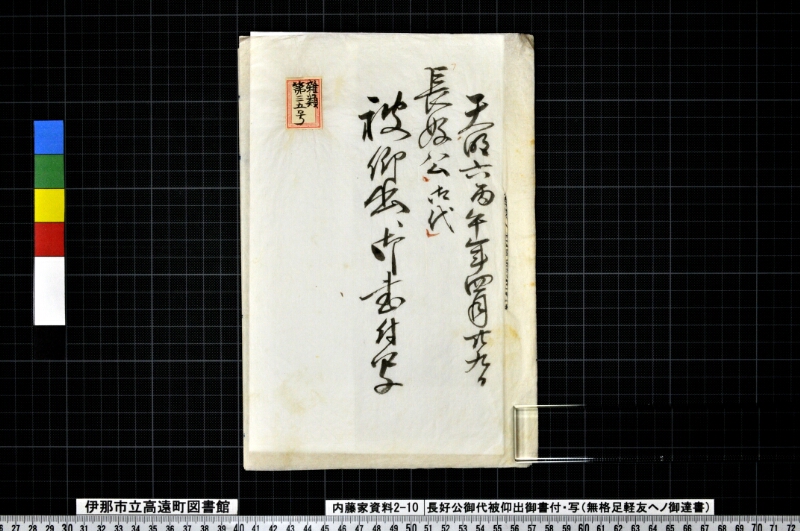 天明六丙午年四月廿九日
長好公御代
被仰出御書付写
雑類
第三五号
伊那市立高遠町図書館
内藤家資料2-10
長好公御代被仰出御書付・写(無格足軽友ヘノ御達書)
26 27 28 29 30 31 32 33 34 35 36 37 38 39 40 41 42 43 44 45 46 47 48 49 50 51 52 53 54 55 56 57 58 59 60 61 62 63 64 65 66 67 68 69 70 71 72